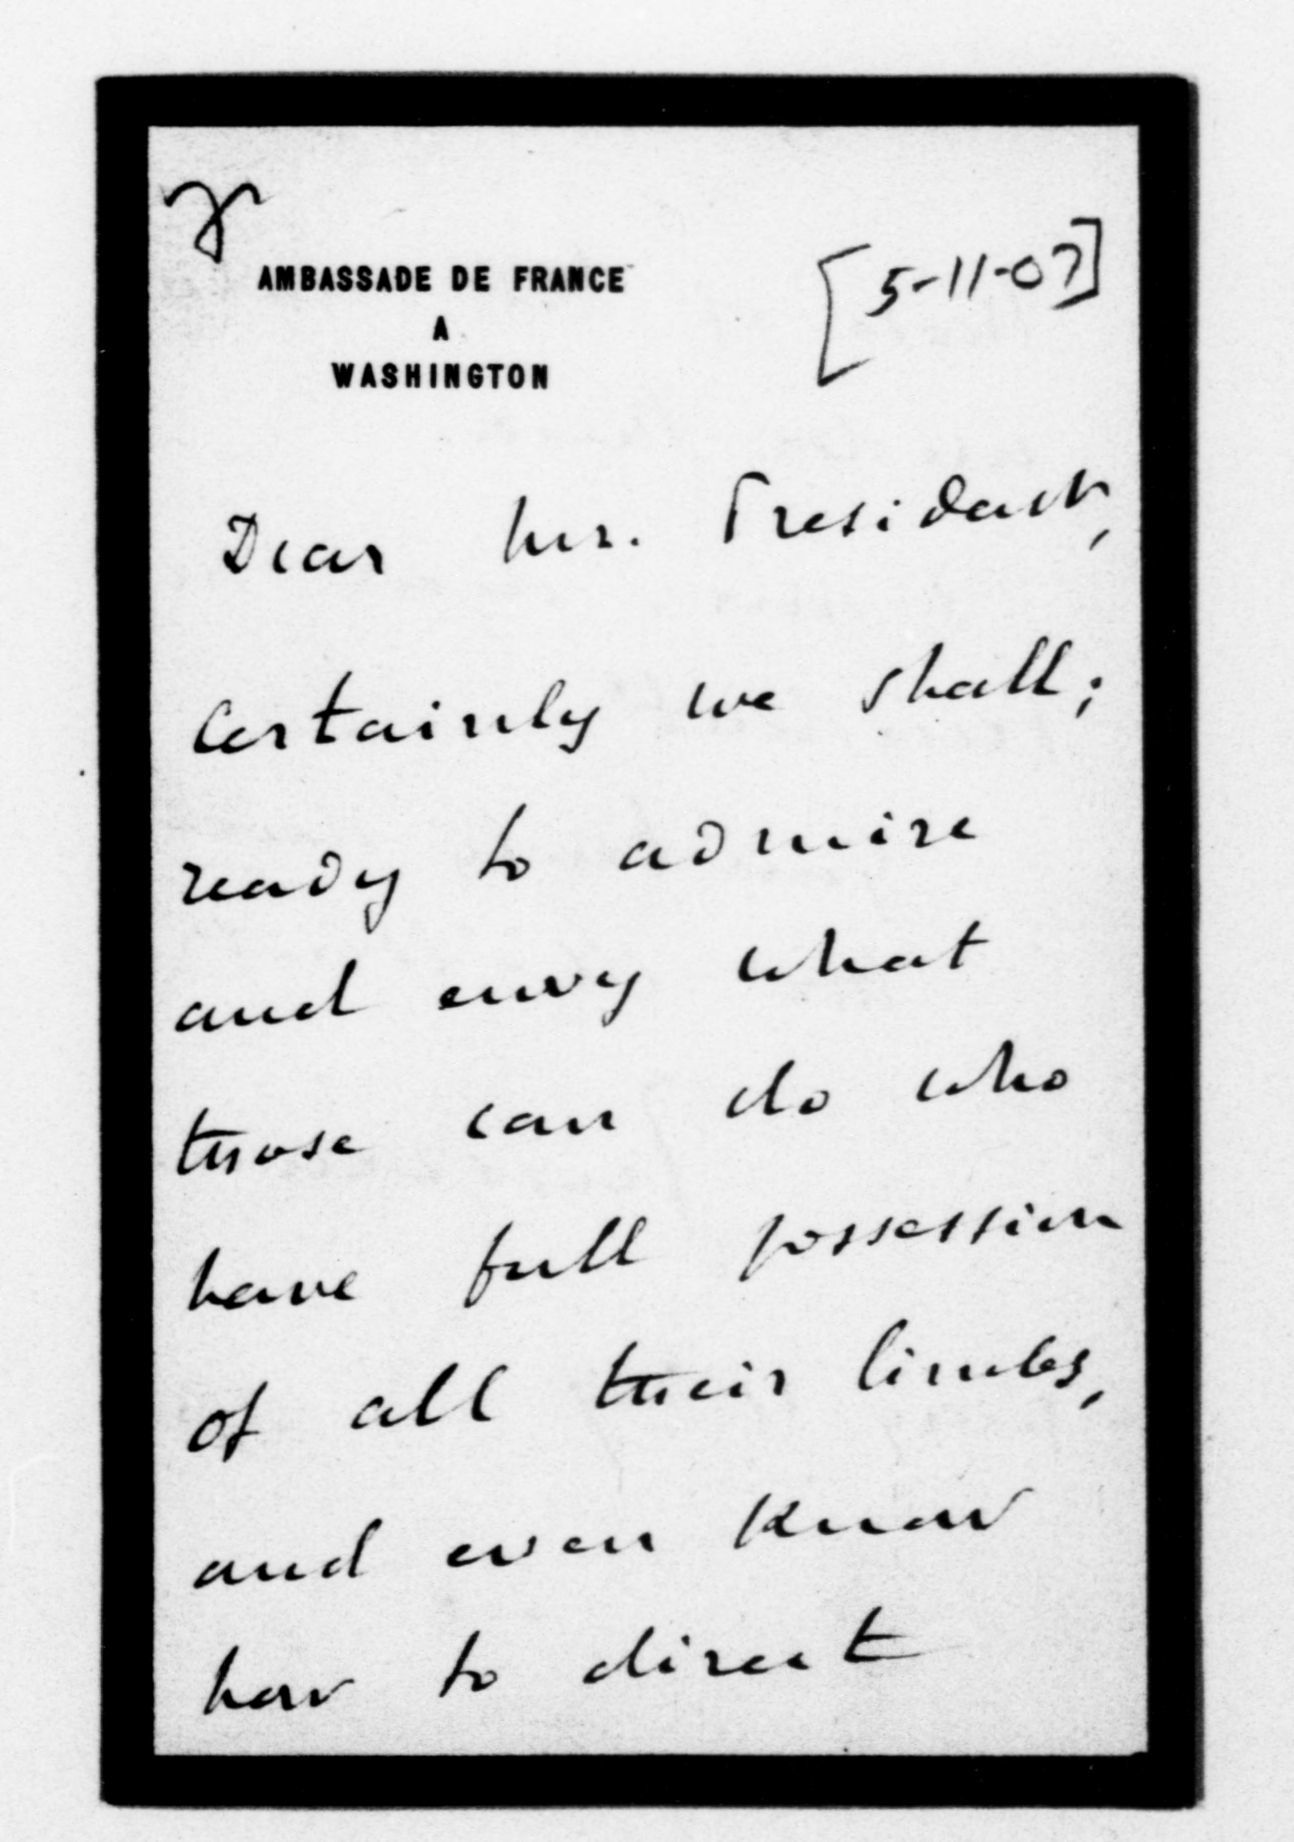 AMBASSADE DE FRANCE
A
WASHINGTON
[5-11-07]
Dear Mr. President,
Certainly we shall;
ready to admire
and envy what
those can do who
have full possession
of all their limbs,
and even know
how to direct